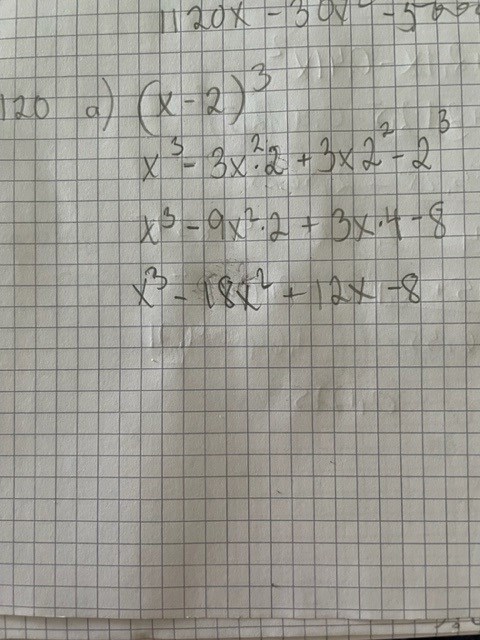 1120x - 30x
120 a) (x-2)³
x³ - 3x²·2 + 3x2² - 2³
x³ - 9x²·2 + 3x·4 - 8
x³ - 18x² + 12x - 8